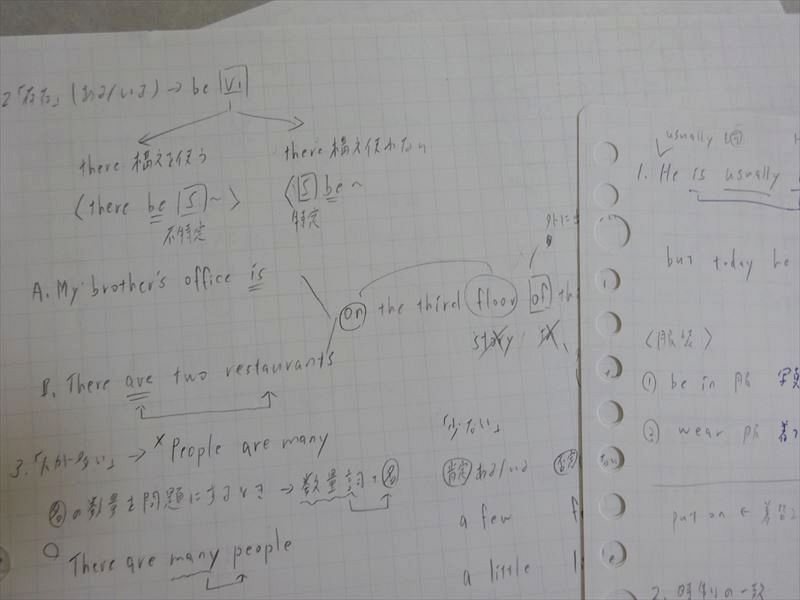 2「存在」(ある/いる)→ be Vi
there 構文を使う
there 構文使わない
〈there be S ~〉
〈S be ~
不特定
特定
A. My brother's office is
on the third floor of th
story in
B. There are two restaurants
3.「人が多い」→ ×People are many
名の数量を問題にするとき → 数量詞+名
○ There are many people
「少ない」
肯定 ある/いる
a few f
a little l
usually
1. He is usually
but today he
〈服装〉
① be in 服
② wear 服
put on ←
2. 時制の一致